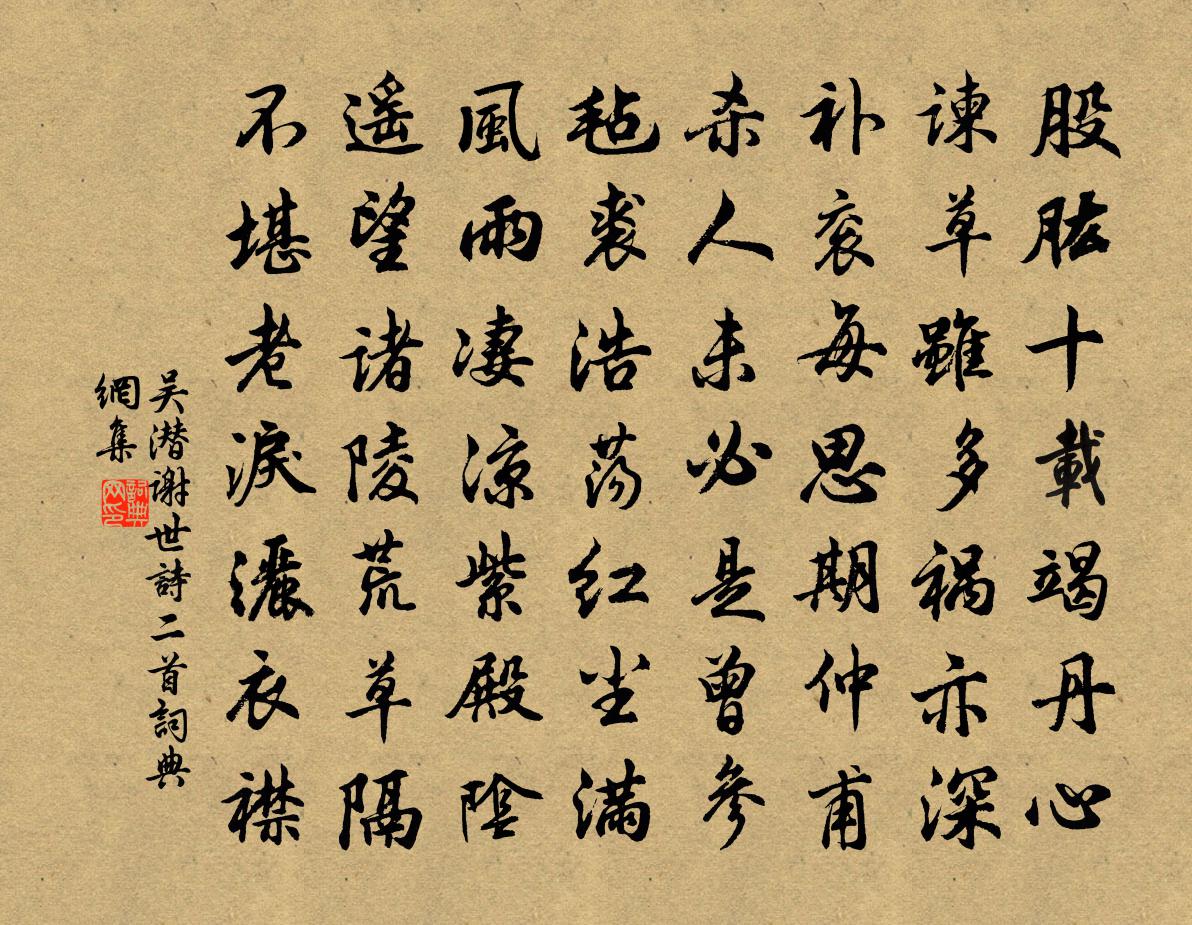 股肱十載竭丹心
諫草雖多禍亦深
补衮每思期仲甫
杀人未必是曾參
毡裘浩荡红尘满
風雨凄凉紫殿陰
遥望诸陵荒草隔
不堪老淚灑衣襟
吴潜谢世詩二首詞典
網集
詞典
网印